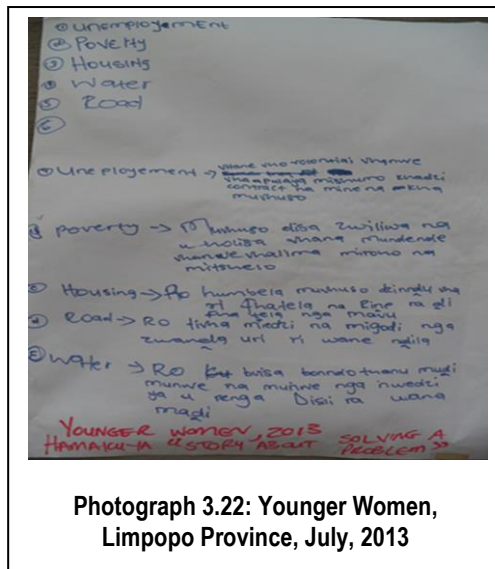 ① Unemployement
② Poverty
③ Housing
④ Water
⑤ Road
⑥
① Uneployement →
contract na mine na
mushuso
poverty → Mushuso disa zwiliwa na
u holisa vhana mundende
mirono na
mitshelo
③ Housing → Ro humbela mushuso dzinndu vha
ri fhatela na Rine ra di
fhatela nga mavu
④ Road → Ro tivha miedzi na migodi nga
zwanḓa uri ri wane ndila
⑤ Water → Ro bvisa bonndo tuanu muḓi
munwe na munwe nga nwedzi
ya u renga Disili ra wana
maḓi
YOUNGER WOMEN, 2013
HAMAKUYA "STORY ABOUT SOLVING A
PROBLEM"
Photograph 3.22: Younger Women,
Limpopo Province, July, 2013